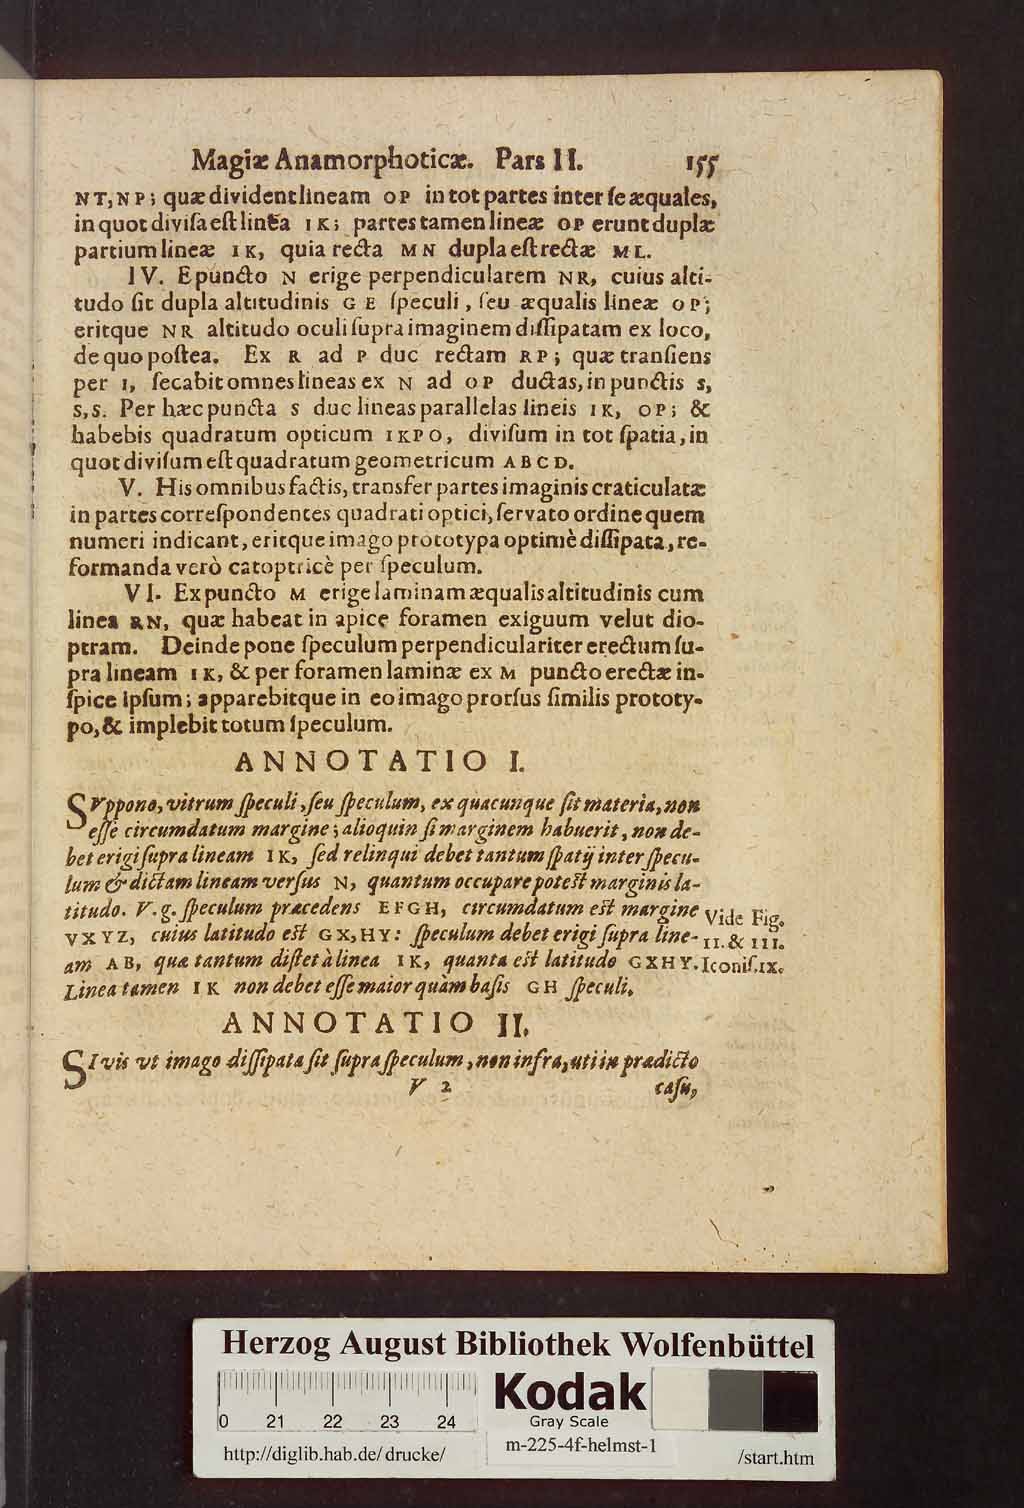 Magiæ Anamorphoticæ. Pars II. 155
NT, NP; quæ dividentlineam OP in tot partes inter ſe æquales,
in quot diviſa eſt linea IK; partes tamen lineæ OP erunt duplæ
partium lineæ IK, quia recta MN dupla eſt rectæ ML.
IV. E puncto N erige perpendicularem NR, cuius alti-
tudo ſit dupla altitudinis GE ſpeculi, ſeu æqualis lineæ OP;
eritque NR altitudo oculi ſupra imaginem diſſipatam ex loco,
de quo poſtea. Ex R ad P duc rectam RP; quæ tranſiens
per I, ſecabit omnes lineas ex N ad OP ductas, in punctis s,
s, s. Per hæc puncta s duc lineas parallelas lineis IK, OP; &
habebis quadratum opticum IKPO, diviſum in tot ſpatia, in
quot diviſum eſt quadratum geometricum ABCD.
V. His omnibus factis, transfer partes imaginis craticulatæ
in partes correſpondentes quadrati optici, ſervato ordine quem
numeri indicant, eritque imago prototypa optimè diſſipata, re-
formanda verò catoptricè per ſpeculum.
VI. Ex puncto M erige laminam æqualis altitudinis cum
linea RN, quæ habeat in apice foramen exiguum velut dio-
ptram. Deinde pone ſpeculum perpendiculariter erectum ſu-
pra lineam IK, & per foramen laminæ ex M puncto erectæ in-
ſpice ipſum; apparebitque in eo imago prorſus ſimilis prototy-
po, & implebit totum ſpeculum.
ANNOTATIO I.
SVppono, vitrum ſpeculi, ſeu ſpeculum, ex quacunque ſit materia, non
eſſe circumdatum margine; alioquin ſi marginem habuerit, non de-
bet erigi ſupra lineam IK, ſed relinqui debet tantum ſpatij inter ſpecu-
lum & dictam lineam verſus N, quantum occupare poteſt marginis la-
titudo. V. g. ſpeculum præcedens EFGH, circumdatum eſt margine
VXYZ, cuius latitudo eſt GX, HY: ſpeculum debet erigi ſupra line-
am AB, quæ tantum diſtet à linea IK, quanta eſt latitudo GXHY.
Linea tamen IK non debet eſſe maior quàm baſis GH ſpeculi.
Vide Fig.
II. & III.
Iconiſ. IX.
ANNOTATIO II.
SI vis vt imago diſſipata ſit ſupra ſpeculum, non infra, uti in prædicto
V 2 caſu,
Herzog August Bibliothek Wolfenbüttel
0 21 22 23 24
Kodak
Gray Scale
http://diglib.hab.de/ drucke/
m-225-4f-helmst-1
/start.htm